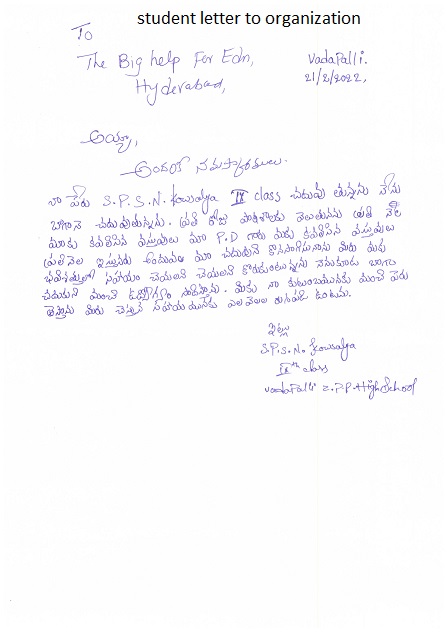 student letter to organization
To
The Big help For Edn,
Hyderabad,
VadaPalli.
21/2/2022,
అయ్యా,
అందరికి నమస్కారములు.
నా పేరు S.P.S.N. Kowsalya IX class చదువు తున్నను నేను
బాగానే చదువుతున్నాను. ప్రతి రోజు పాఠశాలకు వెలుతున్నను ప్రతి నెల
మాకు కావలిసిన వస్తువులు మా P.D గారు మాకు కావలిసిన వస్తువులు
ప్రతినెల ఇస్తున్నారు అందువలన మా చదువుని కొనసాగిస్తున్నాను మీరు మాకు
భవిష్యత్తులో సహాయం చేయలని చేయలని కోరుకుంటున్నాను నేనుకూడా బాగా
చదువుని మంచి ఉద్యోగం సాధిస్తాను. మీకు నా కుటుంబమునకు మంచి పేరు
తెస్తాను మీరు చేస్తున్న సహాయమునకు ఎల వెలల ఉంటాము.
ఇట్లు
S.P.S.N. Kowsalya
IXth class
VadaPalli Z.P.P. High School